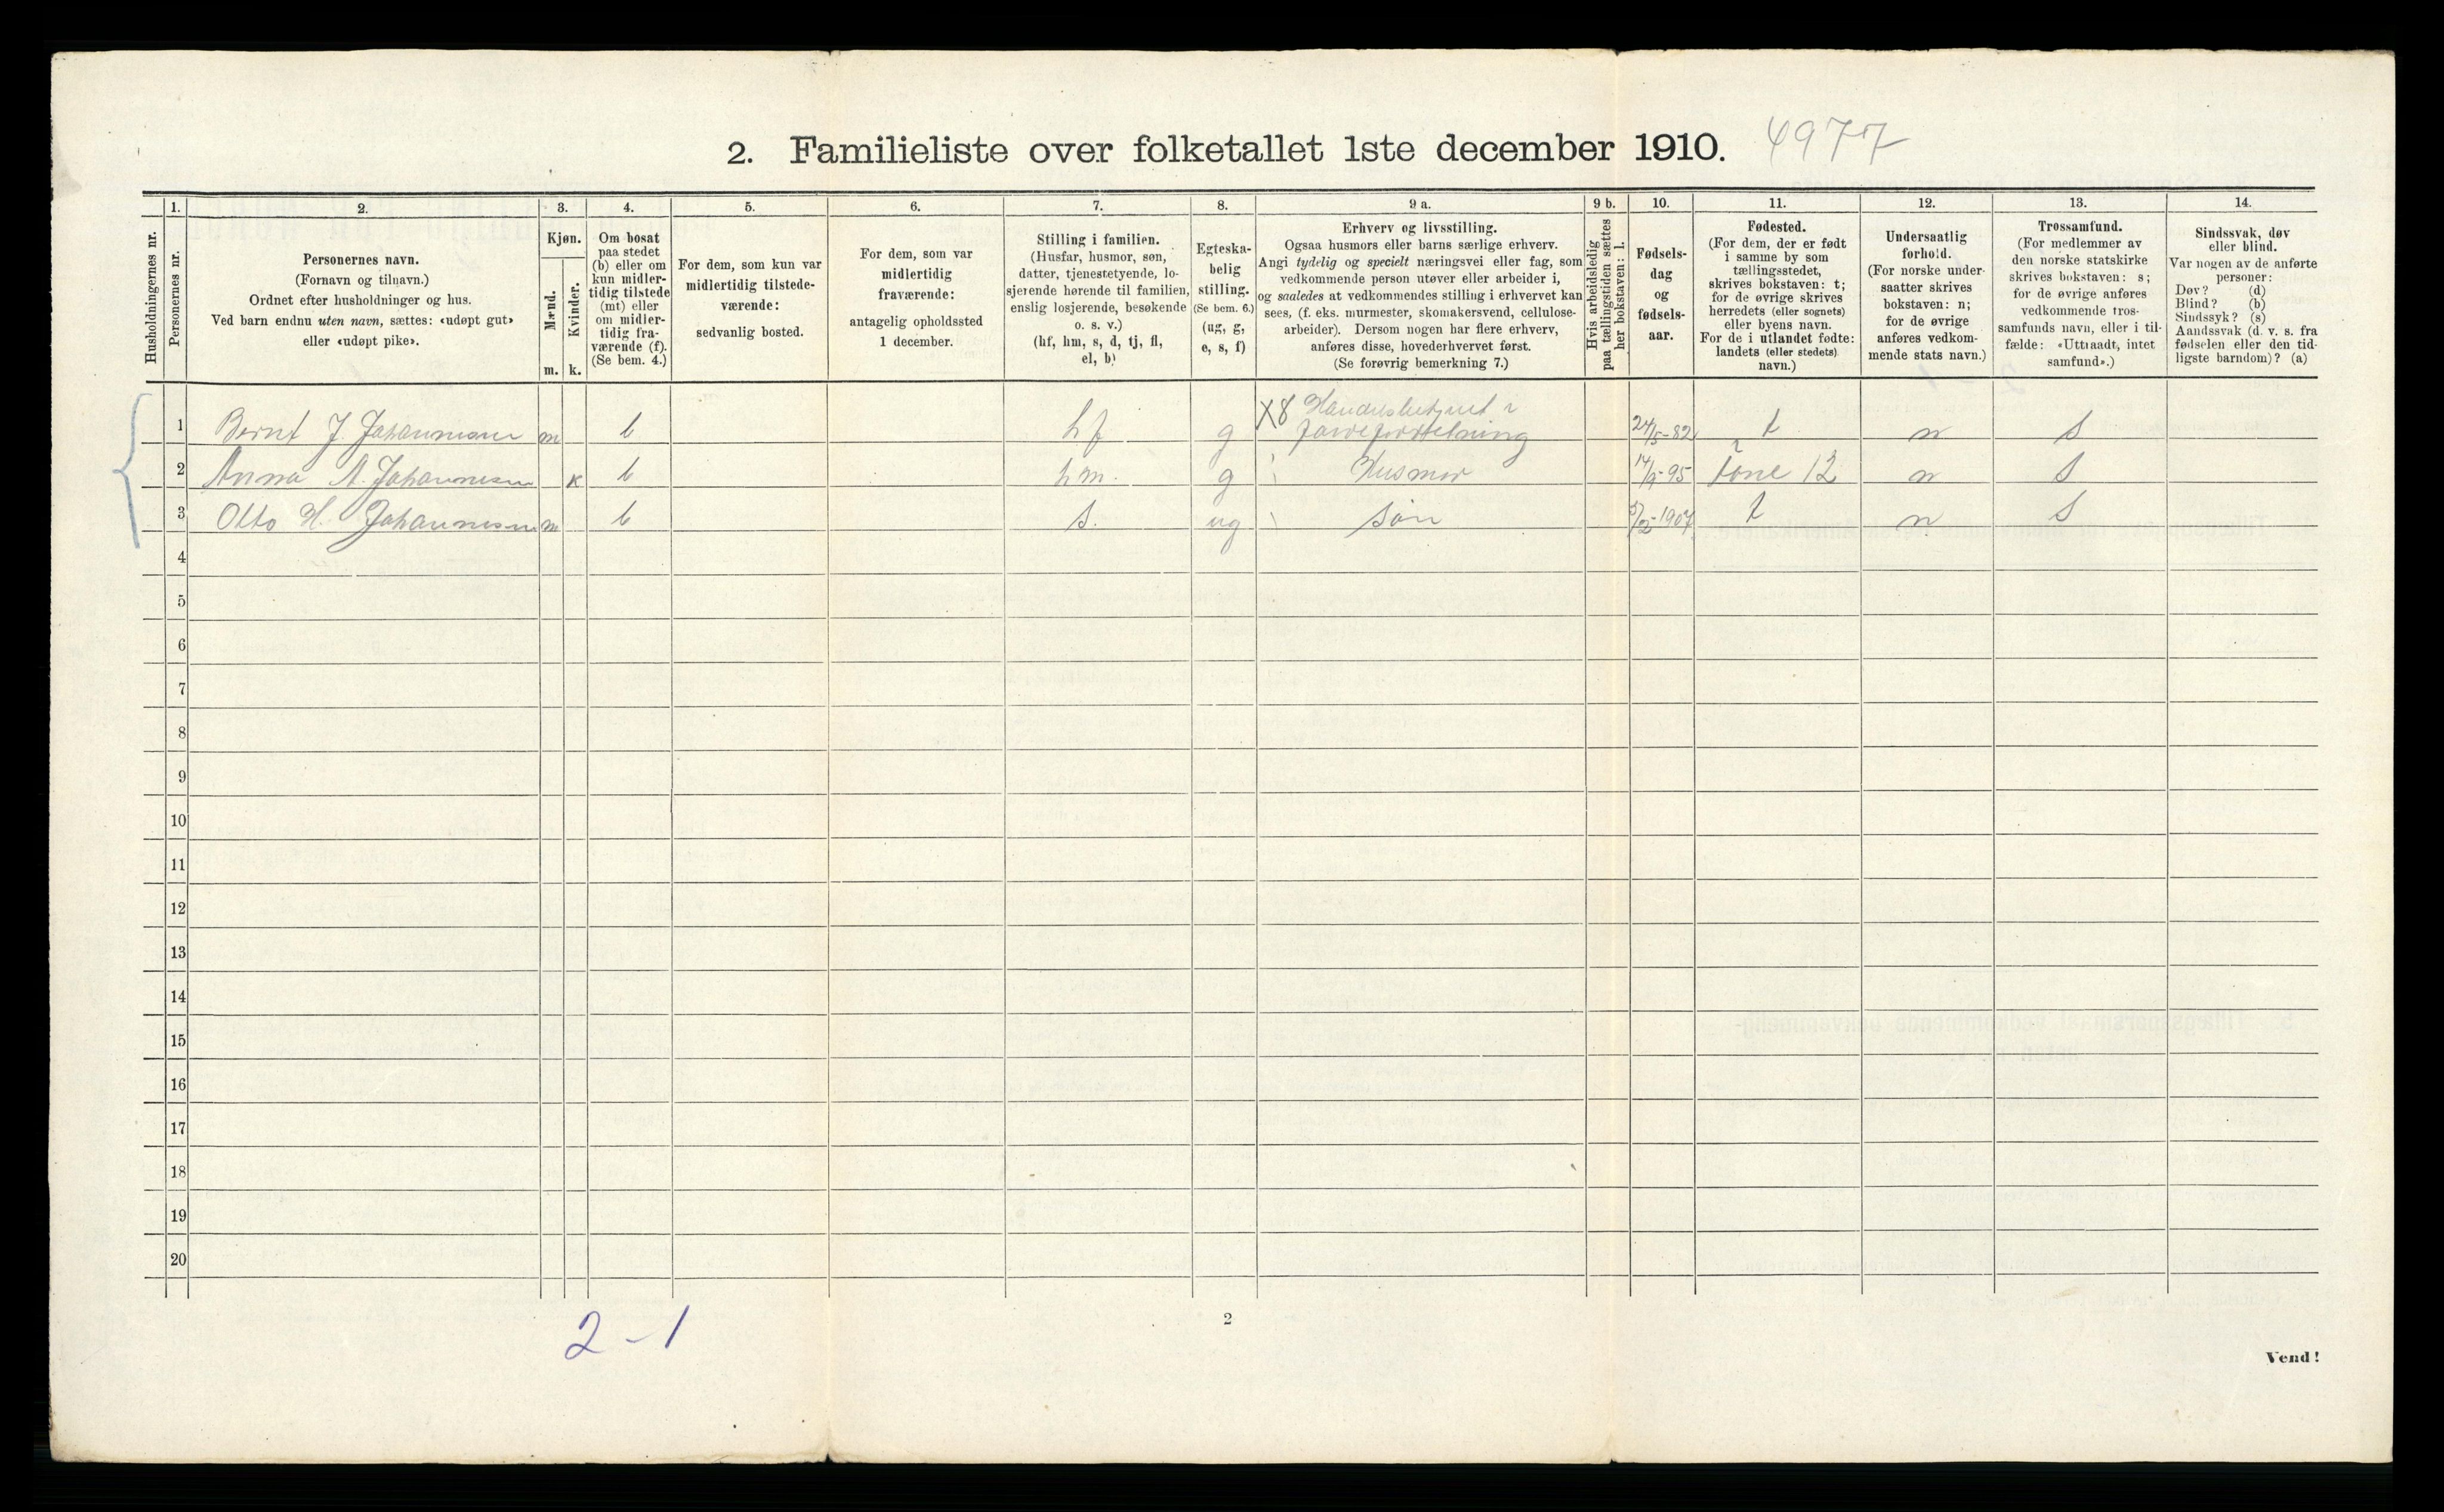 2. Familieliste over folketallet 1ste december 1910. 4977
Husholdningernes nr.
1.
Personernes nr.
2.
Personernes navn.
(Fornavn og tilnavn.)
Ordnet efter husholdninger og hus.
Ved barn endnu uten navn, sættes: «udøpt gut»
eller «udøpt pike».
3.
Kjøn.
Mænd.
Kvinder.
m. k.
4.
Om bosat
paa stedet
(b) eller om
kun midler-
tidig tilstede
(mt) eller
om midler-
tidig fra-
værende (f).
(Se bem. 4.)
5.
For dem, som kun var
midlertidig tilstede-
værende:
sedvanlig bosted.
6.
For dem, som var
midlertidig
fraværende:
antagelig opholdssted
1 december.
7.
Stilling i familien.
(Husfar, husmor, søn,
datter, tjenestetyende, lo-
sjerende hørende til familien,
enslig losjerende, besøkende
o. s. v.)
(hf, hm, s, d, tj, fl,
el, b)
8.
Egteska-
belig
stilling.
(Se bem. 6.)
(ug, g,
e, s, f)
9 a.
Erhverv og livsstilling.
Ogsaa husmors eller barns særlige erhverv.
Angi tydelig og specielt næringsvei eller fag, som
vedkommende person utøver eller arbeider i,
og saaledes at vedkommendes stilling i erhvervet kan
sees, (f. eks. murmester, skomakersvend, cellulose-
arbeider). Dersom nogen har flere erhverv,
anføres disse, hovederhvervet først.
(Se forøvrig bemerkning 7.)
9 b.
Hvis arbeidsledig
paa tællingstiden sættes
her bokstaven: l.
10.
Fødsels-
dag
og
fødsels-
aar.
11.
Fødested.
(For dem, der er født
i samme by som
tællingsstedet,
skrives bokstaven: t;
for de øvrige skrives
herredets (eller sognets)
eller byens navn.
For de i utlandet fødte:
landets (eller stedets)
navn.)
12.
Undersaatlig
forhold.
(For norske under-
saatter skrives
bokstaven: n;
for de øvrige
anføres vedkom-
mende stats navn.)
13.
Trossamfund.
(For medlemmer av
den norske statskirke
skrives bokstaven: s;
for de øvrige anføres
vedkommende tros-
samfunds navn, eller i til-
fælde: «Uttraadt, intet
samfund».)
14.
Sindssvak, døv
eller blind.
Var nogen av de anførte
personer:
Døv? (d)
Blind? (b)
Sindssyk? (s)
Aandssvak (d. v. s. fra
fødselen eller den tid-
ligste barndom)? (a)
1 Bernt J. Johannesen m b hf g X8 farveforretning 24/5-82 t n s
2 Anna A. Johannesen k b hm. g Husmor n s
3 Otto H. Johannesen m b s. ug søn t n s
4
5
6
7
8
9
10
11
12
13
14
15
16
17
18
19
20
2 - 1
2
Vend!